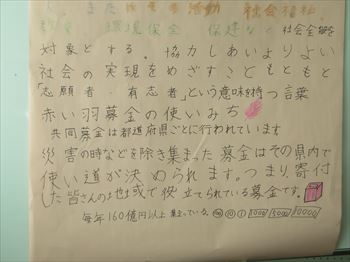 教育 環境保全 保健など 社会全般を
対象とする。協力しあいよりよい
社会の実現をめざすこともともと
「志願者・有志者」という意味を持つ言葉
赤い羽募金の使いみち
共同募金は都道府県ごとに行われています
災害の時などを除き集まった募金はその県内で
使い道が決められます。つまり寄付
した皆さんの地域で役立てられている募金です。
毎年160億円以上集まっている。